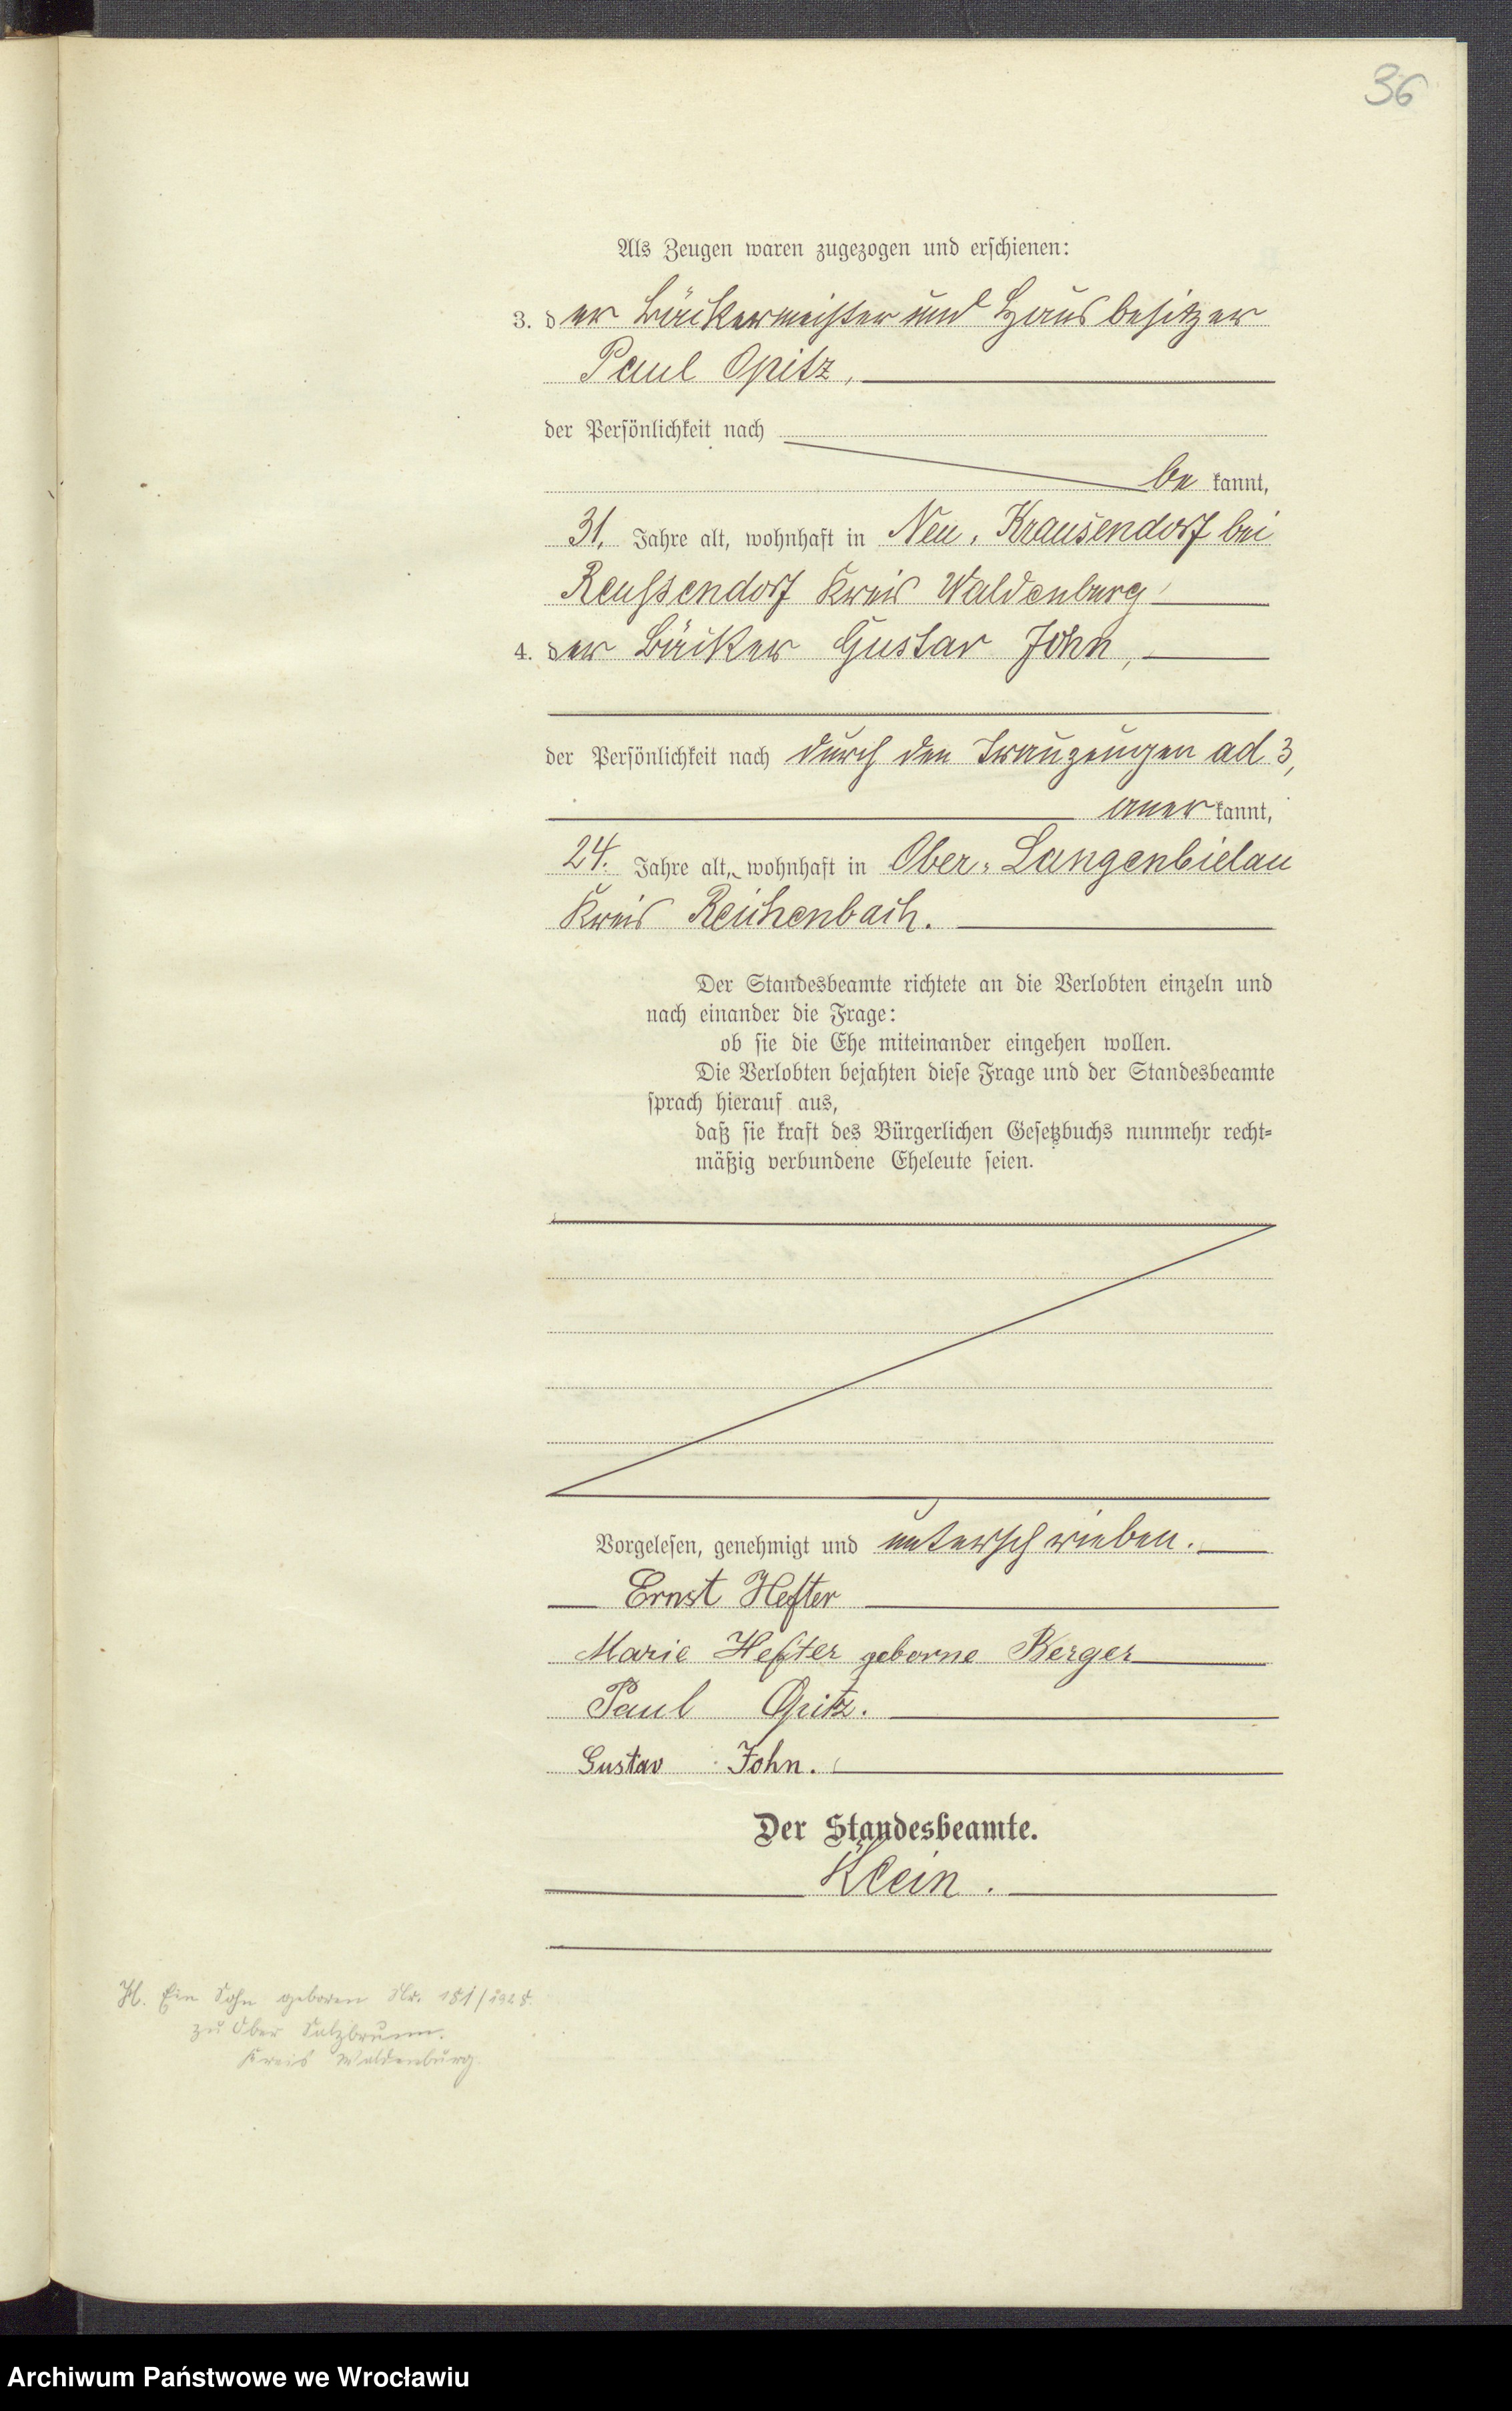 36
Als Zeugen waren zugezogen und erschienen:
3. der Bäckermeister und Hausbesitzer
Paul Opitz,
der Persönlichkeit nach
be kannt,
31. Jahre alt, wohnhaft in Neu-Krausendorf bei
Reußendorf Kreis Waldenburg
4. der Bäcker Gustav John,
der Persönlichkeit nach durch den Trauzeugen ad 3,
aner kannt,
24. Jahre alt, wohnhaft in Ober-Langenbielau
Kreis Reichenbach.
Der Standesbeamte richtete an die Verlobten einzeln und
nach einander die Frage:
ob sie die Ehe miteinander eingehen wollen.
Die Verlobten bejahten diese Frage und der Standesbeamte
sprach hierauf aus,
daß sie kraft des Bürgerlichen Gesetzbuchs nunmehr recht-
mäßig verbundene Eheleute seien.
Vorgelesen, genehmigt und unterschrieben.
Ernst Hefter
Marie Hefter geborne Berger
Paul Opitz.
Gustav John.
Der Standesbeamte.
Klein.
Ein Sohn geboren Nr. 151/1925.
zu Ober Salzbrunn.
Kreis Waldenburg.
Archiwum Państwowe we Wrocławiu